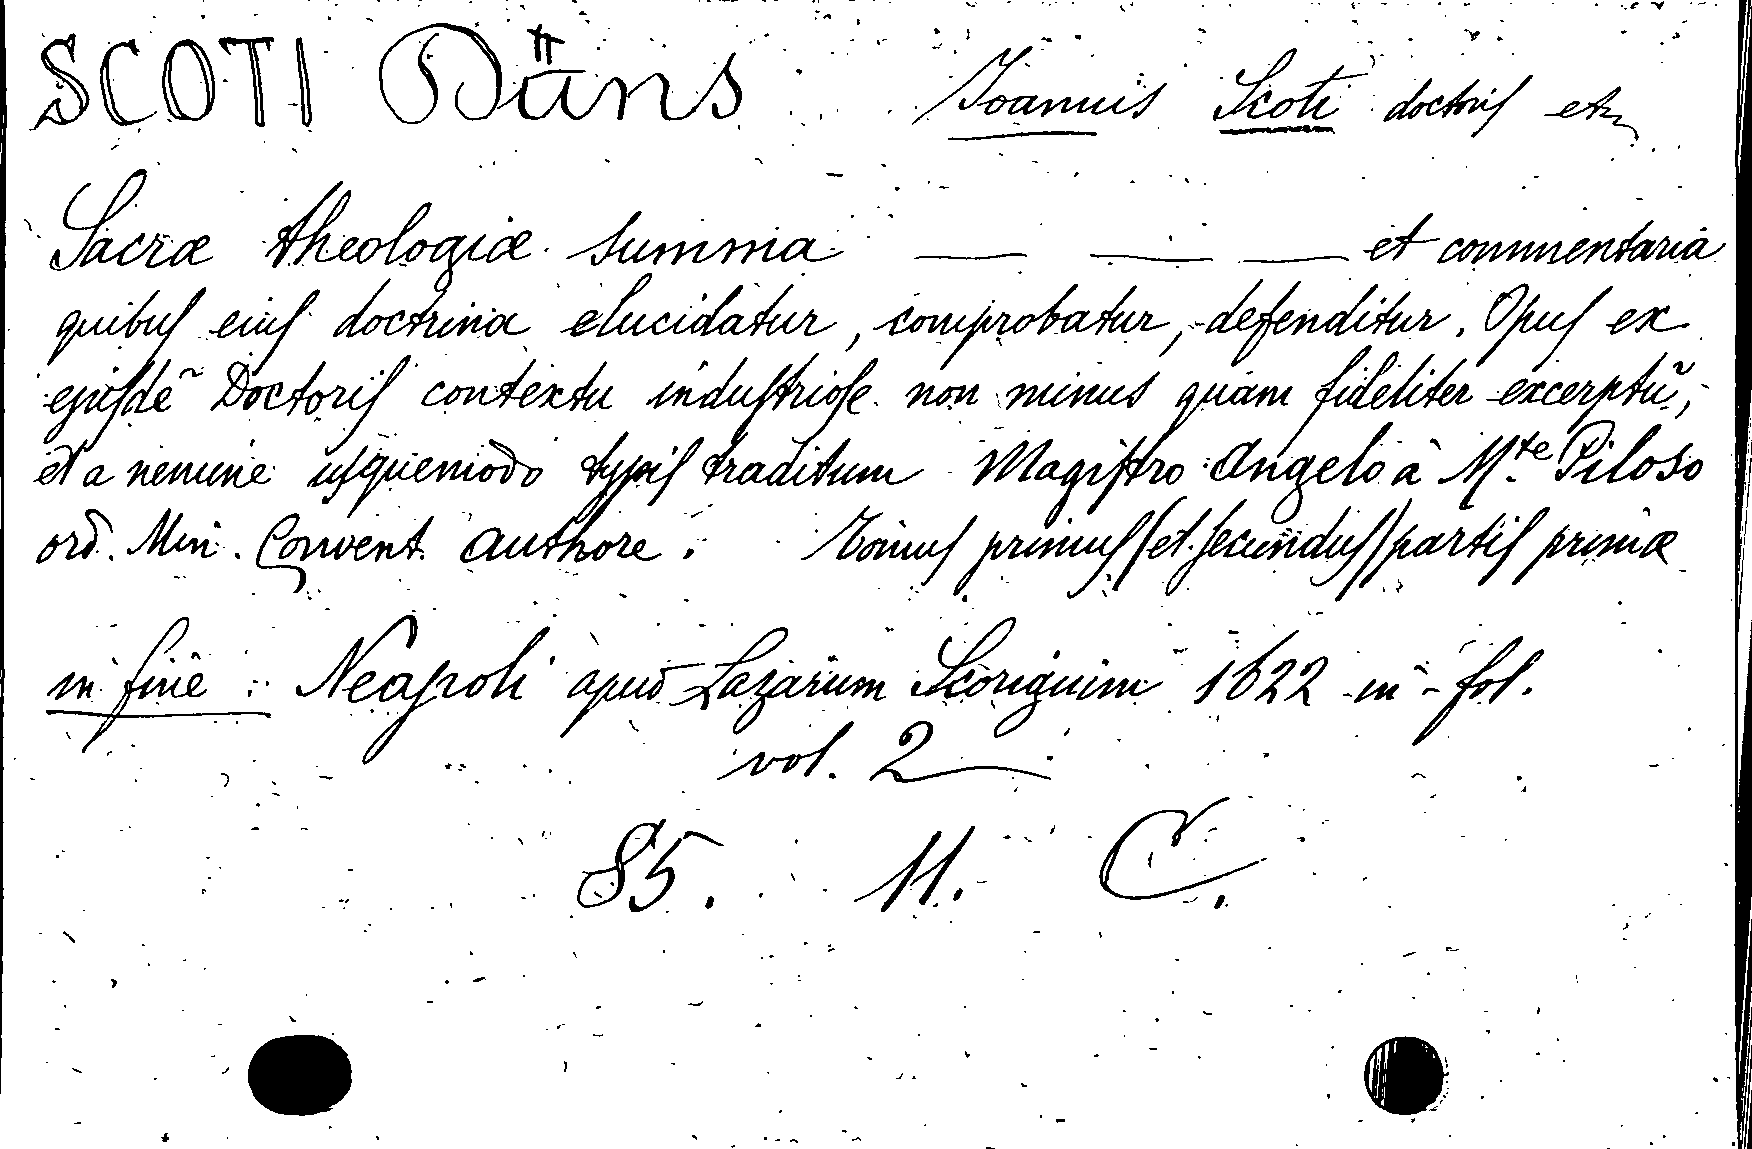 SCOTI Duns Joannis Scoti doctoris etc
Sacræ theologiæ summa — — — et commentaria
quibus eius doctrina elucidatur, comprobatur, defenditur. Opus ex
ejusdē Doctoris contextu industriose non minus quam fideliter excerptū,
et a nemine usquemodo typis traditum Magistro Angelo à Mte Piloso
ord. Min. Convent. authore. Tomus primus (et secundus) partis primæ
in fine: Neapoli apud Lazarum Scoriguim 1622 in-fol.
vol. 2
85. 11. C.